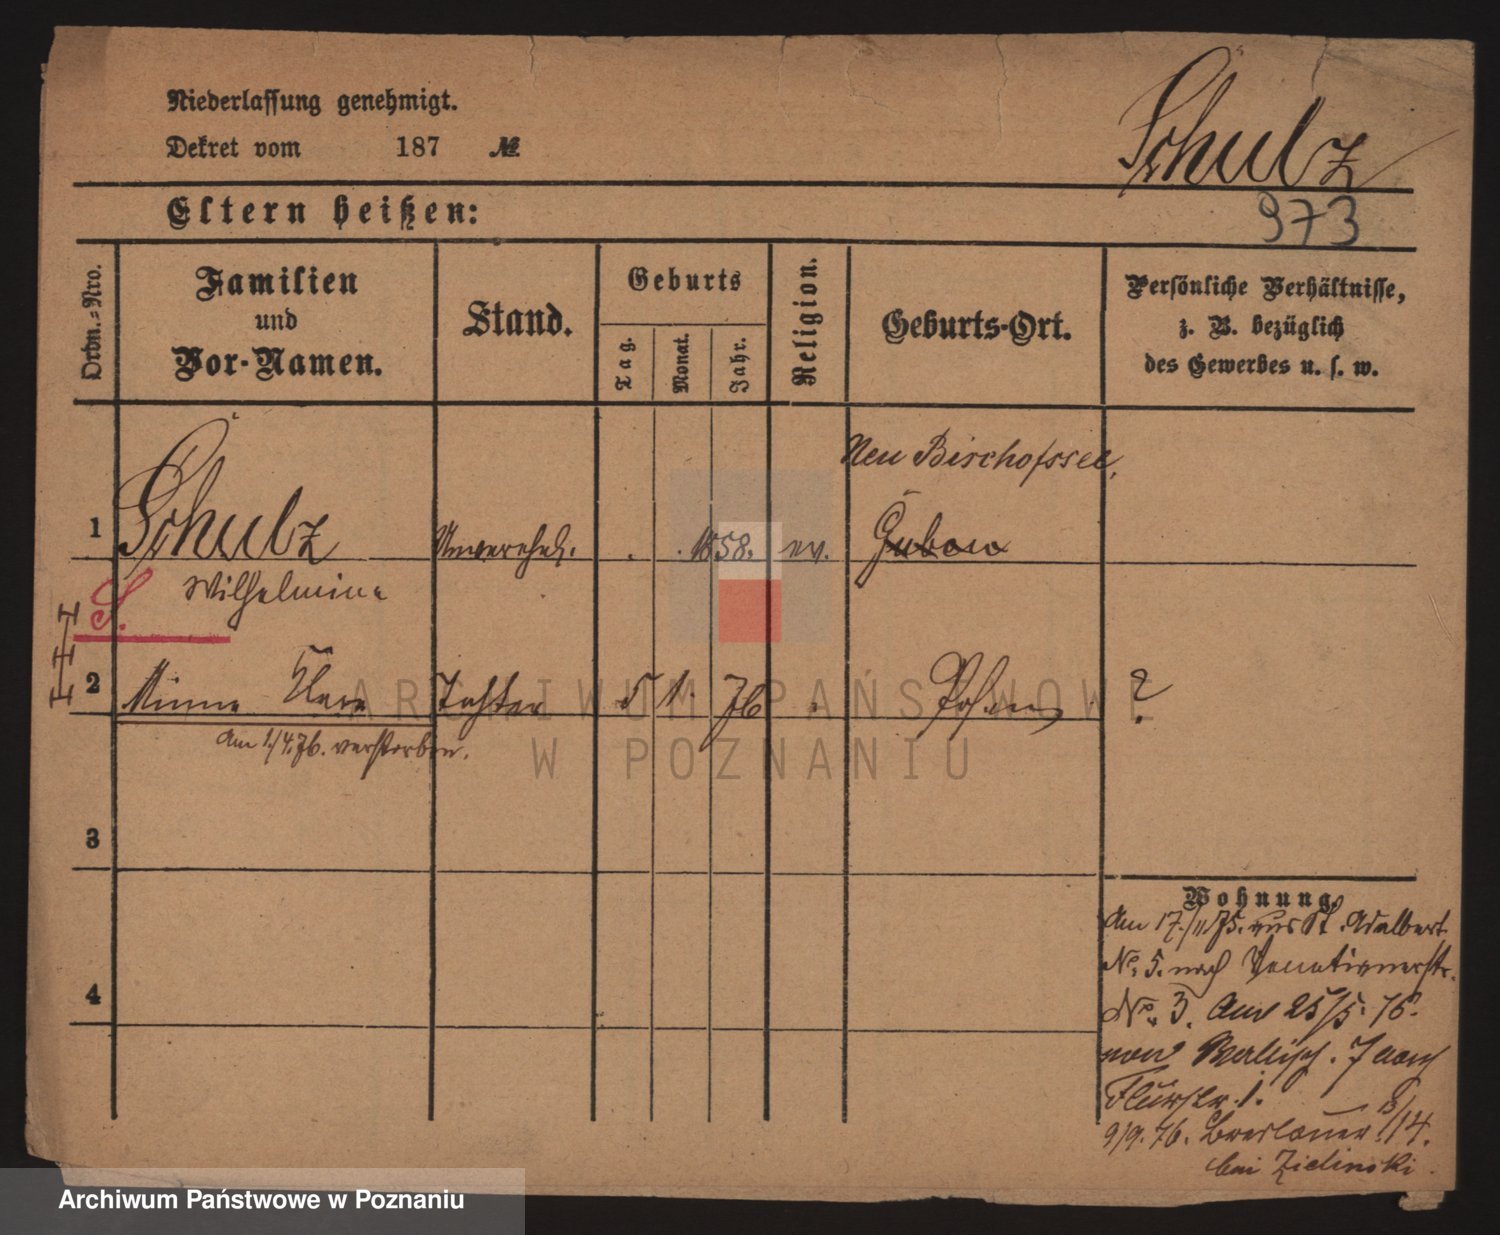 Niederlassung genehmigt.
Dekret vom 187 №
Schulz
973
Eltern heißen:
Ordn.-Nro.
Familien
und
Vor-Namen.
Stand.
Geburts
Tag.
Monat.
Jahr.
Religion.
Geburts-Ort.
Persönliche Verhältnisse,
z. B. bezüglich
des Gewerbes u. s. w.
Neu Bischofssee,
1 Schulz Unverehel. . . 1858. ev. Gubow
S. Wilhelmine
2 Minna Tochter 5 1. 76 . Posen ?
Am 1./4.76. verstorben.
3
4
Wohnung.
Am 17./11.75. aus St. Adalbert
No. 5. nach Venetianerstr.
No. 3. Am 25/5. 76.
von Wallisch. 7 nach
9/9. 76. Breslauer 13/14.
bei Zielinski.
ARCHIWUM PAŃSTWOWE
W POZNANIU
Archiwum Państwowe w Poznaniu